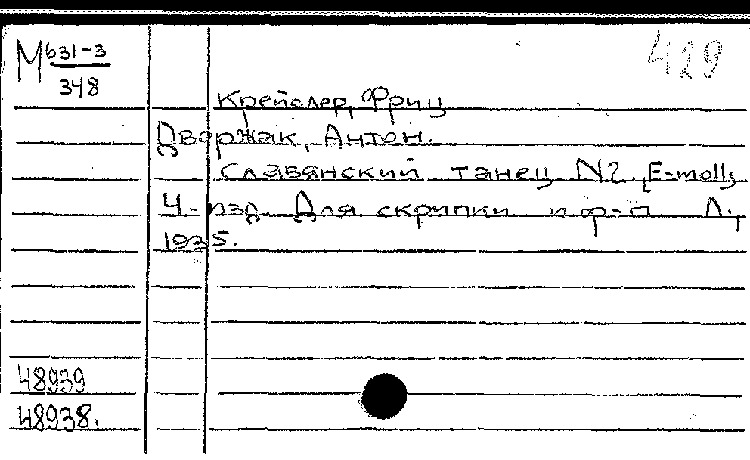 М 631-3
348
429
Крейслер, Фриц
Дворжак, Антон.
Славянский танец №2 [E-moll];
4-изд. Для скрипки и ф-п Л.,
1935.
48939
48938.